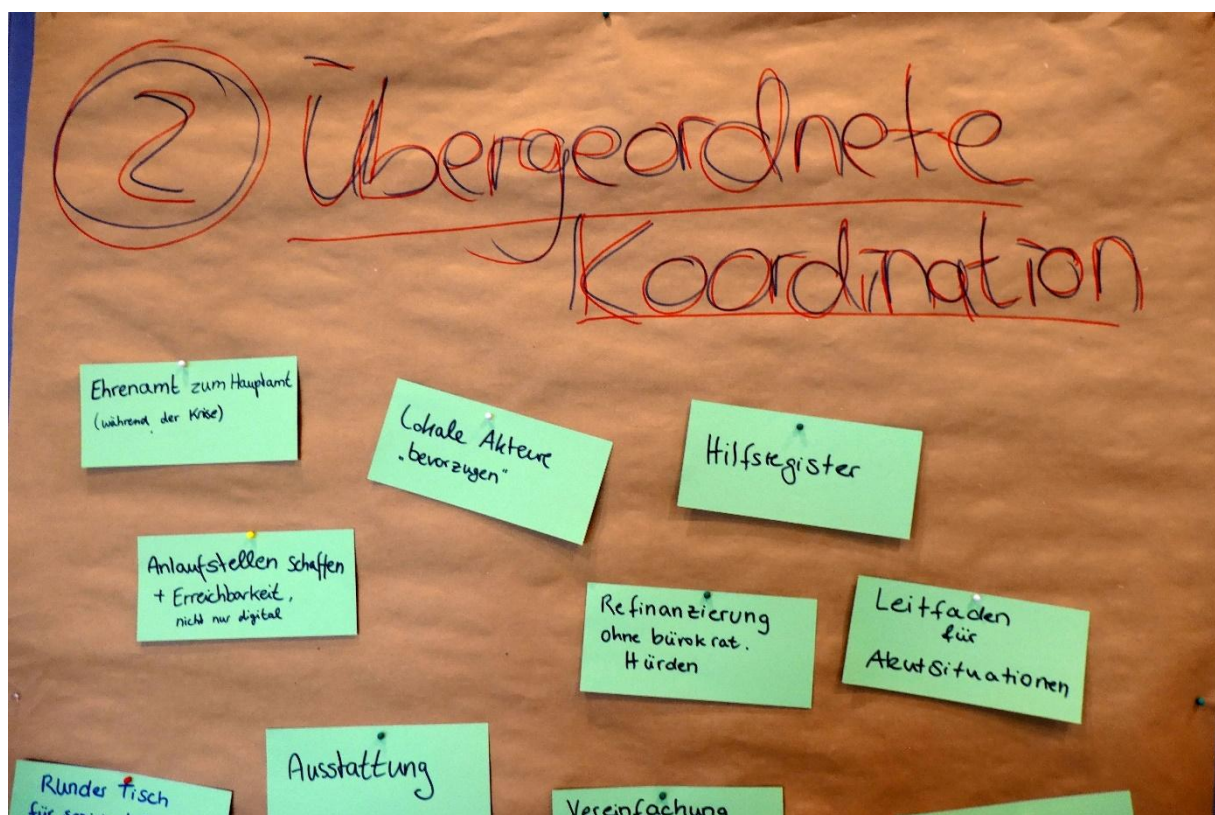 2 Übergeordnete
Koordination
Ehrenamt zum Hauptamt
(während der Krise)
Lokale Akteure
"bevorzugen"
Hilfsregister
Anlaufstellen schaffen
+ Erreichbarkeit,
nicht nur digital
Refinanzierung
ohne bürokrat.
Hürden
Leitfaden
für
Akutsituationen
Runder Tisch
für
Ausstattung
Vereinfachung